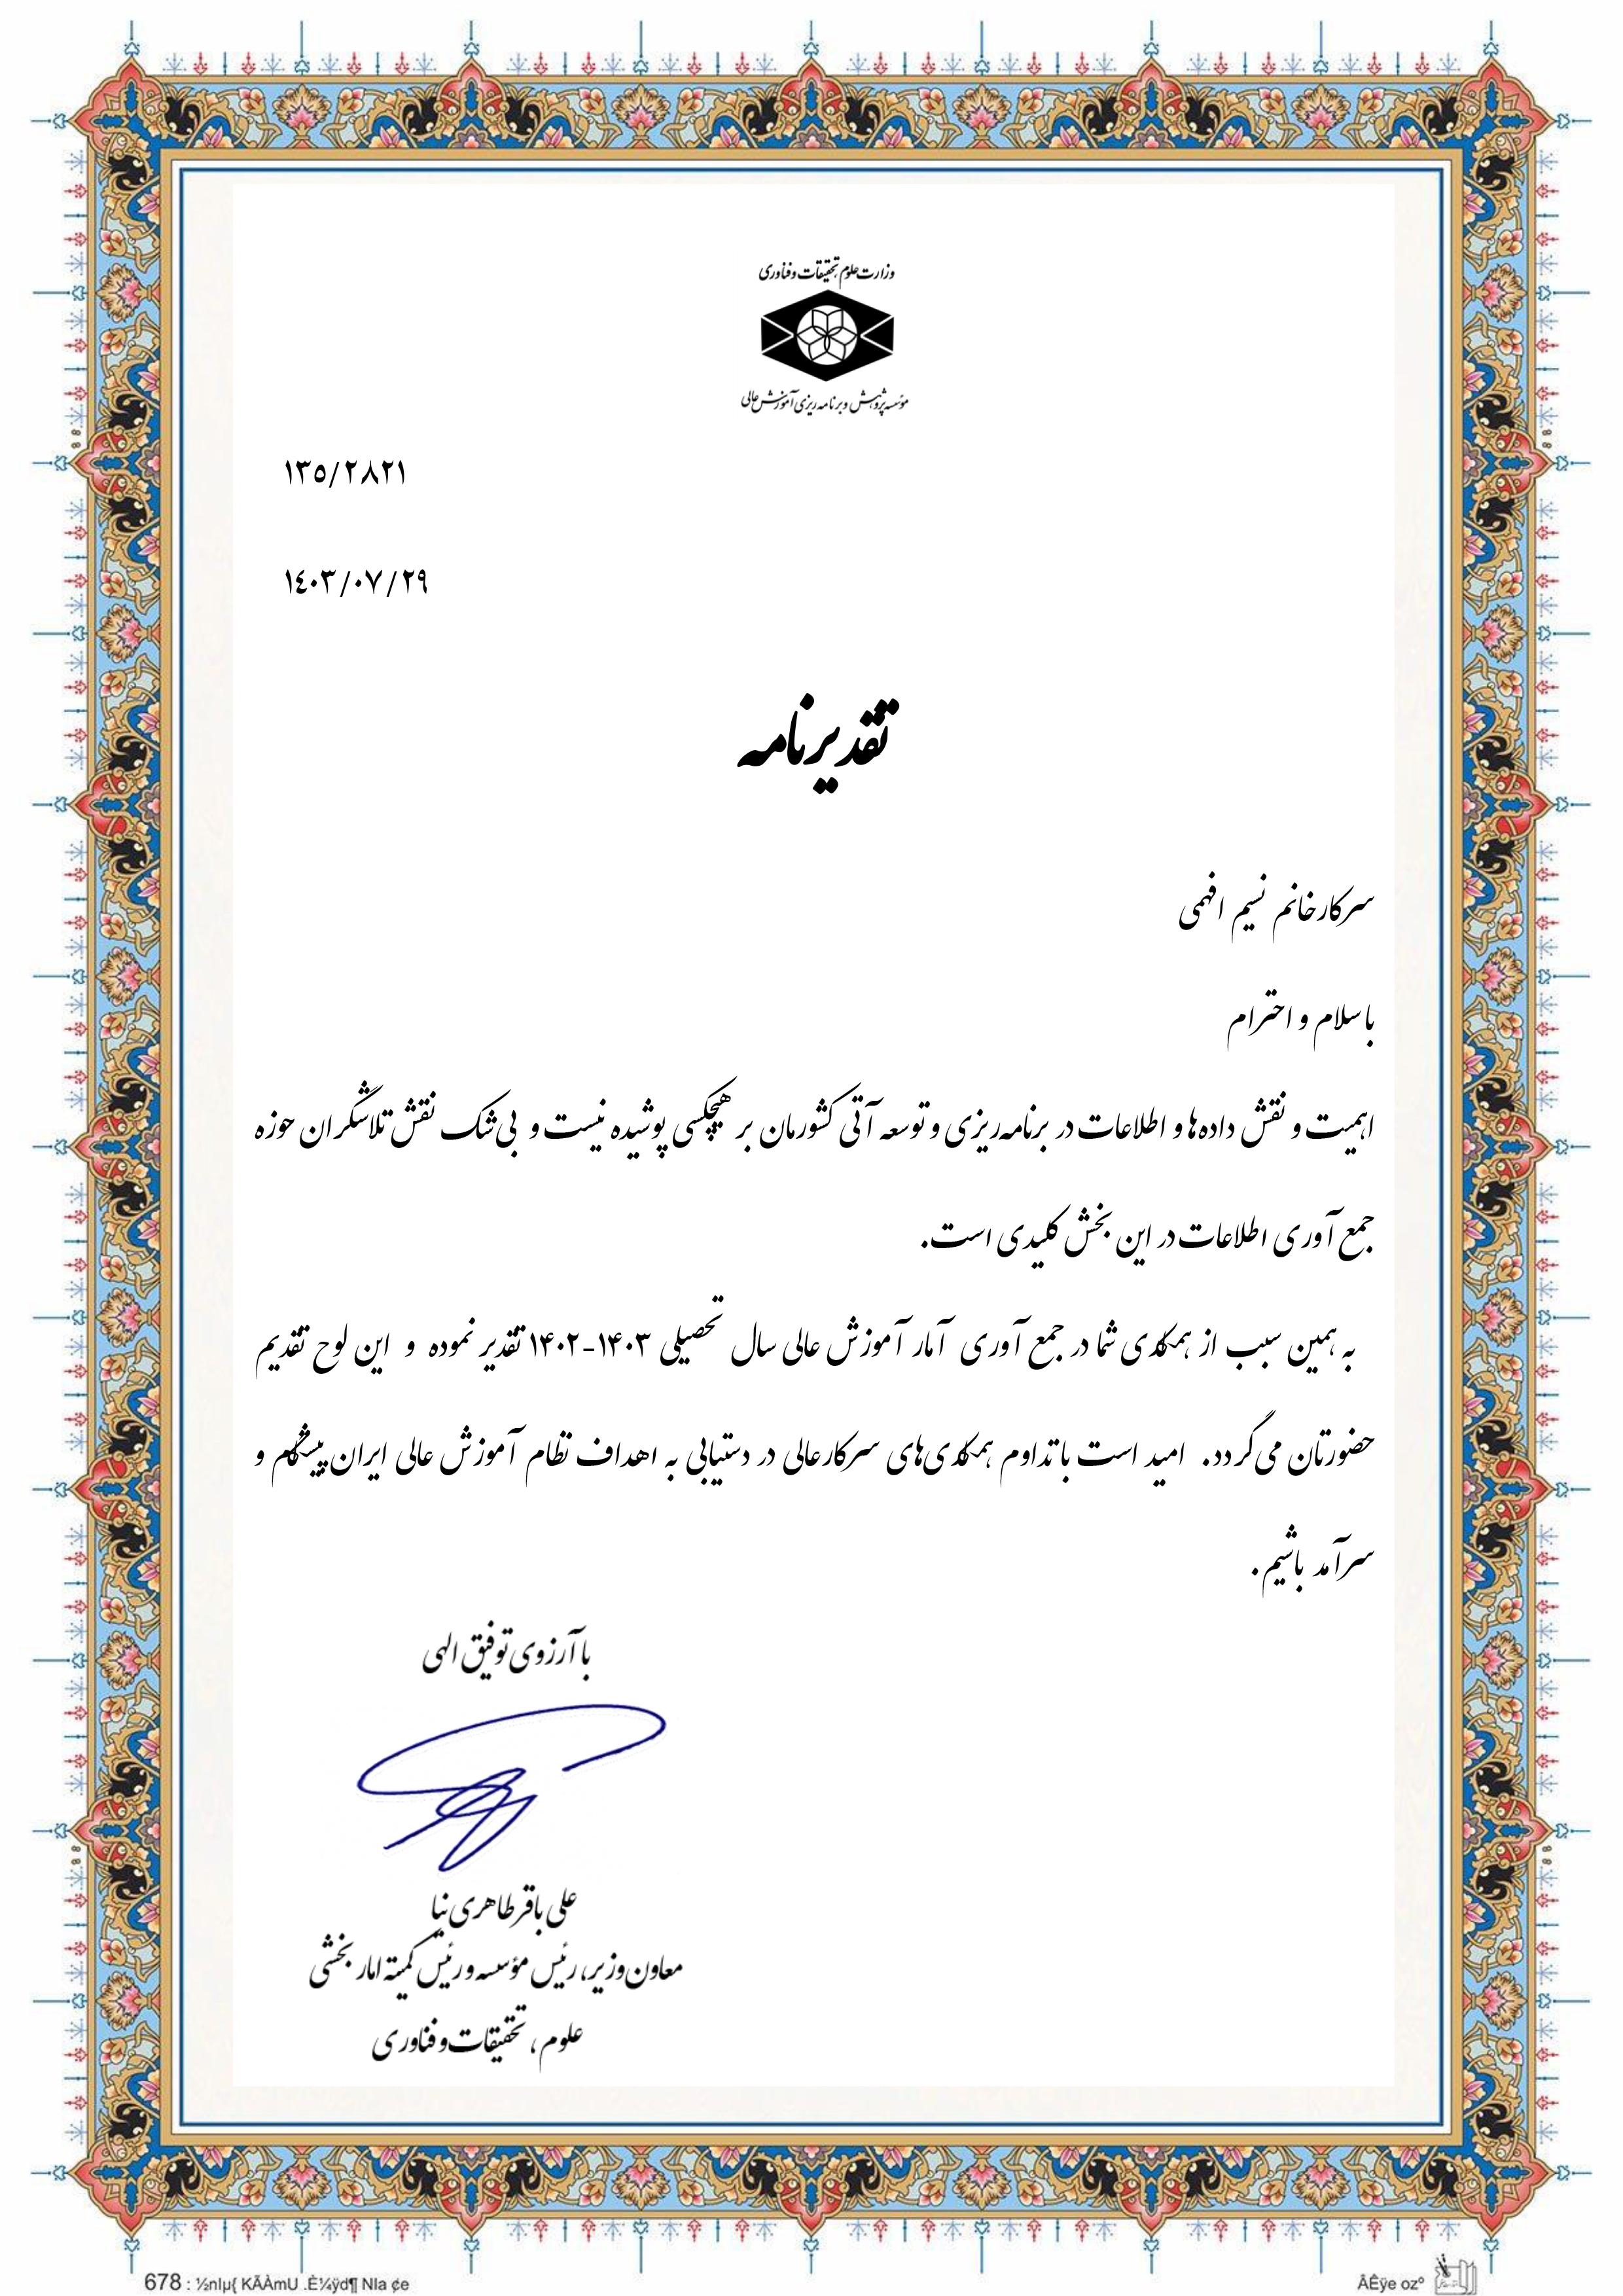 وزارت علوم تحقیقات و فناوری
مؤسسه پژوهش و برنامه ریزی آموزش عالی
۱۳۵/۲۸۲۱
۱٤۰۳/۰۷/۲۹
تقدیرنامه
سرکارخانم نسیم افهمی
باسلام و احترام
اهمیت و نقش داده‌ها و اطلاعات در برنامه‌ریزی و توسعه آتی کشورمان بر هیچکسی پوشیده نیست و بی‌شک نقش تلاشگران حوزه
جمع آوری اطلاعات در این بخش کلیدی است.
به همین سبب از همکاری شما در جمع آوری آمار آموزش عالی سال تحصیلی ۱۴۰۳-۱۴۰۲ تقدیر نموده و این لوح تقدیم
حضورتان می‌گردد. امید است با تداوم همکاری‌های سرکارعالی در دستیابی به اهداف نظام آموزش عالی ایران پیشگام و
سرآمد باشیم.
با آرزوی توفیق الهی
علی باقر طاهری نیا
معاون وزیر، رئیس مؤسسه و رئیس کمیته امار بخشی
علوم، تحقیقات و فناوری
678 : ½nIµ{ KÃÀmU .È¼ÿd¶ NIa ¢e
ÂÊÿe oz°